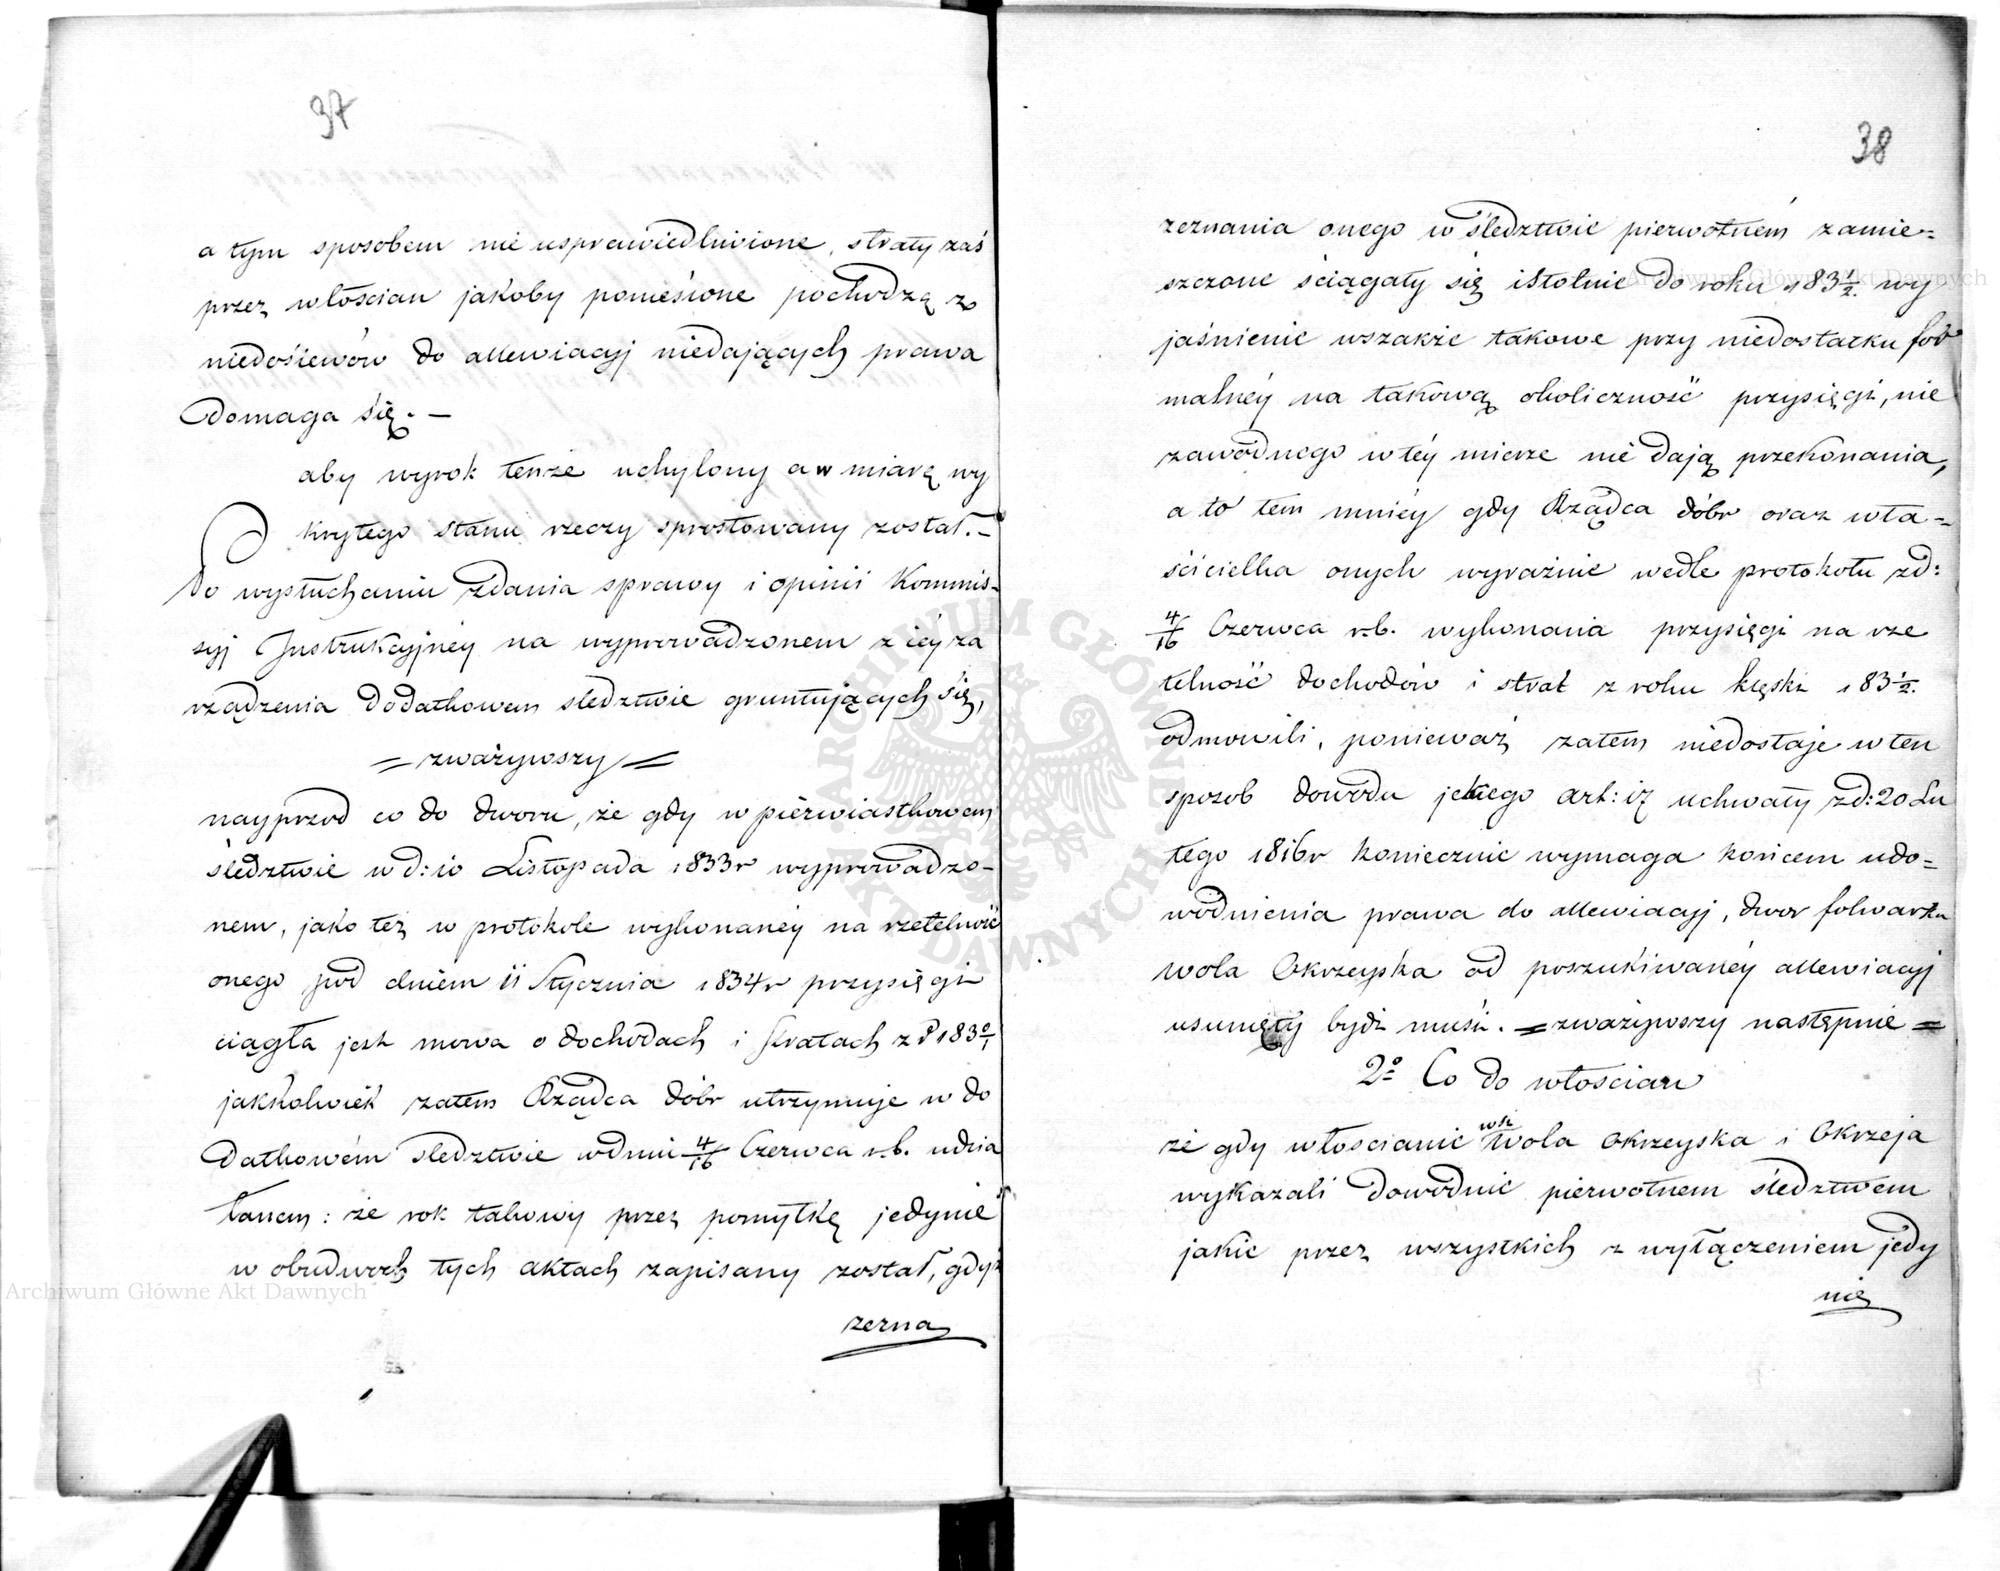 37
a tym sposobem nie usprawiedliwione, straty zaś
przez włościan jakoby poniesione pochodzą z
niedosiewów do allewiacyj niedających prawa
domaga się. —
aby wyrok tenże uchylony a w miarę wy
krytego stanu rzeczy sprostowany został. —
Po wysłuchaniu zdania sprawy i opinii Kommis-
syj Instrukcyjnéy na wyprowadzonem z jéy za
rządzenia dodatkowem śledztwie gruntujących się,
= zważywszy =
nayprzod co do dworu, że gdy w pierwiastkowem
śledztwie w d: 10 Listopada 1833 r wyprowadzo-
nem, jako też w protokole wykonanéy na rzetelność
onego pod dniem 11 Stycznia 1834 r przysięgi
ciągła jest mowa o dochodach i stratach z r 183 0/1
jakkolwiek zatem Rządca dóbr utrzymuje w do
datkowém śledztwie w dniu 4/16 Czerwca r. b. udzia
łanem: że rok takowy przez pomyłkę jedynie
w obudwóch tych aktach zapisany został, gdyż
zezna
38
zeznania onego w śledztwie pierwotném zamie=
szczone ściągały się istotnie do roku 183 1/2. wy
jaśnienie wszakże takowe przy niedostatku for
malnéy na takową okoliczność przysięgi, nie
zawodnego w téy mierze nie dają przekonania,
a to tem mniéy gdy Rządca dóbr oraz wła=
ścicielka onych wyraźnie wedle protokołu z d:
4/16 Czerwca r. b. wykonania przysięgi na rze
telność dochodów i strat z roku klęski 183 1/2.
odmowili, ponieważ zatem niedostaje w ten
sposob dowodu jakiego art: 17 uchwały z d: 20 Lu
tego 1816 r koniecznie wymaga końcem udo=
wodnienia prawa do allewiacyj, dwor folwarku
Wola Okrzeyska od poszukiwanéy allewiacyj
usunięty bydź musi. = zważywszy następnie =
2o Co do włościan
że gdy włościanie wsi Wola Okrzeyska i Okrzeja
wykazali dowodnie pierwotnem śledztwem
jakie przez wszystkich z wyłączeniem jedy
nie
ARCHIWUM GŁÓWNE AKT DAWNYCH
Archiwum Główne Akt Dawnych
Archiwum Główne Akt Dawnych